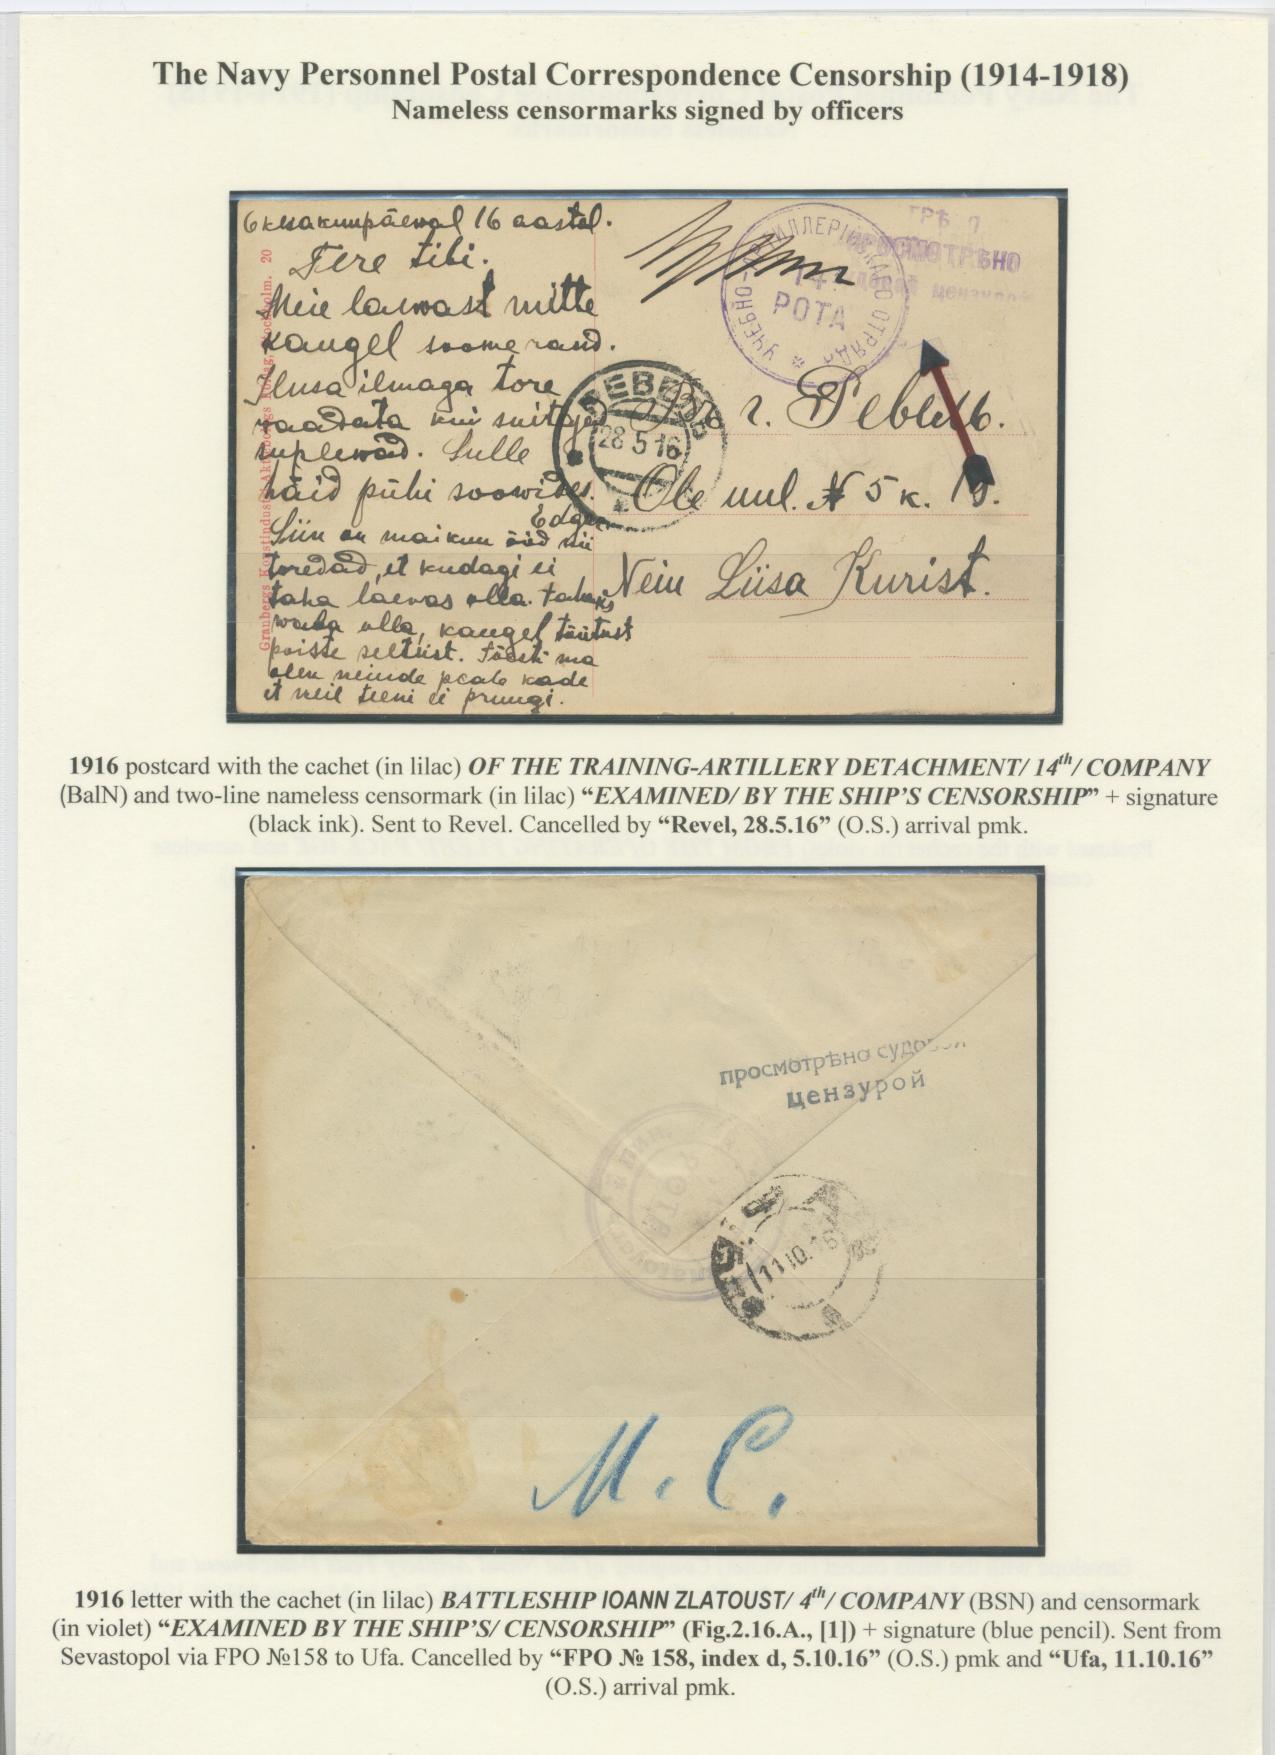 The Navy Personnel Postal Correspondence Censorship (1914-1918)
Nameless censormarks signed by officers
16 aastal.
Tere tibi.
Meie laewast mitte
kaugel soome rand.
Ilusa ilmaga tore
raadata kui suitajad
suplewad. Sulle
häid pühi soowides.
Edgar
Siin on maikuu ööd nii
toredad, et kudagi ei
taha laewas olla. tahaks
waba olla, kaugel
poiste seltsist. Tõesti ma
olen neiude peale kade
et neil teeni ei pruugi.
Granbergs Konstindustri-Aktiebolags Förlag, Stockholm. 20
УЧЕБНО-АРТИЛЛЕРІЙСКАГО ОТРЯДА
14
РОТА
ПРОСМОТРѢНО
судовой цензурой
РЕВЕЛЬ
28 5 16
г. Ревель.
Ole uul. № 5 к. 15.
Neiu Liisa Kurist.
1916 postcard with the cachet (in lilac) OF THE TRAINING-ARTILLERY DETACHMENT/ 14th/ COMPANY
(BalN) and two-line nameless censormark (in lilac) “EXAMINED/ BY THE SHIP’S CENSORSHIP” + signature
(black ink). Sent to Revel. Cancelled by “Revel, 28.5.16” (O.S.) arrival pmk.
просмотрѣно судовой
цензурой
РОТА
УФА
11 10. 16
М. С.
1916 letter with the cachet (in lilac) BATTLESHIP IOANN ZLATOUST/ 4th/ COMPANY (BSN) and censormark
(in violet) “EXAMINED BY THE SHIP’S/ CENSORSHIP” (Fig.2.16.A., [1]) + signature (blue pencil). Sent from
Sevastopol via FPO №158 to Ufa. Cancelled by “FPO № 158, index d, 5.10.16” (O.S.) pmk and “Ufa, 11.10.16”
(O.S.) arrival pmk.